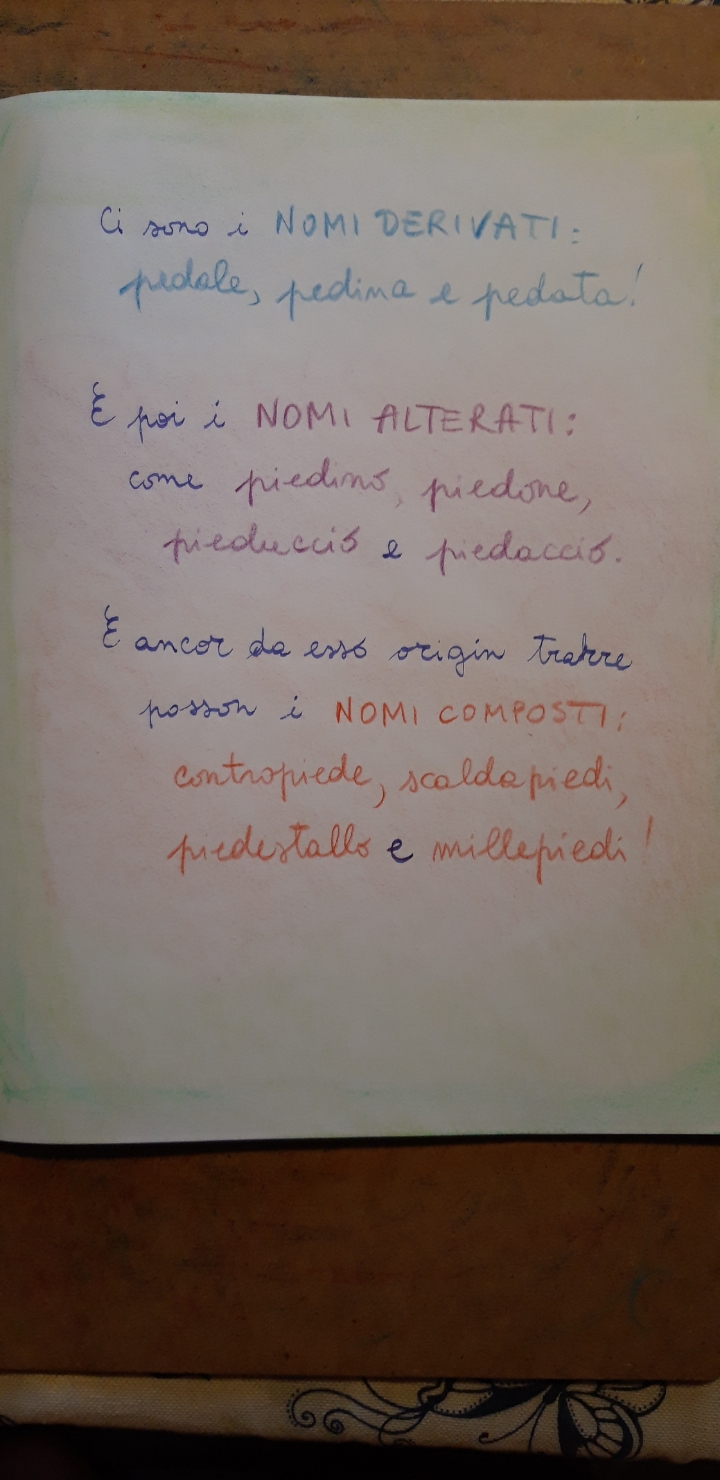 Ci sono i NOMI DERIVATI:
pedale, pedina e pedata!
E poi i NOMI ALTERATI:
come piedino, piedone,
pieduccio e piedaccio.
E ancor da esso origin trarre
posson i NOMI COMPOSTI:
contropiede, scaldapiedi,
piedestallo e millepiedi!